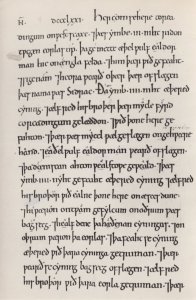 ñ. dccclxxi. her com se here to rea
dingum on westseaxe. þæs ymbe .iii. niht ridon
eorlas up. þa gemette hie æþelwulf ealdor
man hie on englafelda. 7 him þær wið gefeaht
7 sige nam. 7 heora wearð þær oþer ofslegen
þæs nama wæs Sidroc. Ða ymb .iiii. niht æþered
cyning. 7 ælfred his broþor þær mycle fyrd
to readingum gelæddon. 7 wið þone here ge
fuhton. þær wæs mycel wæl geslegen on gehwæþere
hand. 7 eaþelwulf ealdorman wearð ofslegen.
7 þa deniscan ahton wælstowe geweald. 7 þæs
ymb .iiii. niht gefeaht æþered cyning 7 ælfred
his broþor wið ealne þone here on æscesdune.
7 hi wæron on twam gefylcum on oðrum wæs
bagsecg. 7 healfdene þa hæðenan cyningas. 7 on
oðrum wæron þa eorlas. Þa feaht se cyning
æþered wið þara cyninga getruman. 7 þær
wearð se cyning bagsecg ofslegen. 7 ælfred
his broþor wið þara eorla getruman. 7 þær